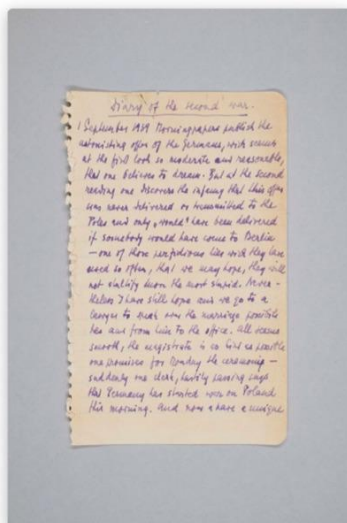 Diary of the second war.
1 September 1939 Morningpapers publish the
astonishing offer of the Germans, wich seems
at the first look so moderate and reasonable,
that one believes to dream. But at the second
reading one discovers the infamy that this offer
was never delivered or transmitted to the
Poles and only "would" have been delivered
if somebody would have come to Berlin
— one of those perfidious lies wich they have
used so often, that we may hope, they will
not even the most stupid. Never-
theless I have still hope and we go to a
lawyer to make now the marriage possible
and from him to the office. All seems
smooth, the magistrate is as kind as possible
one promises for Monday the ceremony —
suddenly one clerk, hastily passing says
that Germany has started war on Poland
this morning. And now a unique